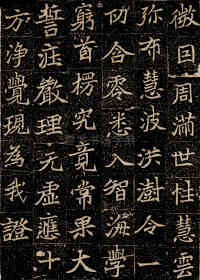 微囙周滿世性慧雲
弥布慧波洪澍令一
切含零悉入智海學
窮首楞究竟常果大
誓莊嚴理无虛應十
方淨覺現為我證